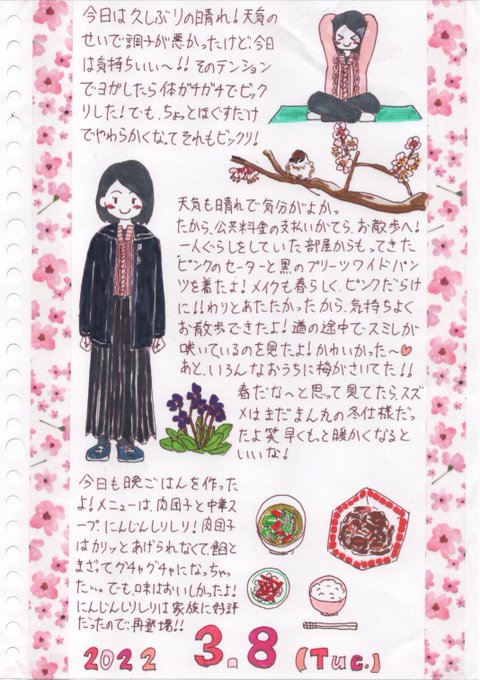 今日は久しぶりの晴れ！天気の
せいで調子が悪かったけど、今日
は気持ちいい〜！！そのテンション
でヨガしたら体がガチガチでビック
リした！でも、ちょっとほぐすだけ
でやわらかくなって、それもビックリ！
天気も晴れで気分がよかっ
たから、公共料金の支払いがてら、お散歩へ！
一人ぐらしをしていた部屋からもってきた
ピンクのセーターと黒のプリーツワイドパン
ツを着たよ！メイクも春らしく、ピンクだらけ
に！！わりとあたたかかったから、気持ちよく
お散歩できたよ！道の途中でスミレが
咲いているのを見たよ！かわいかった〜♡
あと、いろんなおうちに梅がさいてた！！
春だな〜と思って見てたら、スズ
メはまだまん丸の冬仕様だっ
たよ笑 早くもっと暖かくなると
いいな！
今日も晩ごはんを作った
よ！メニューは、肉団子と中華ス
ープ、にんじんしりしり！肉団子
はカリッとあげられなくて、餡と
まざってグチャグチャになっちゃっ
た…。でも、味はおいしかったよ！
にんじんしりしりは家族に好評
だったので、再登場！！
2022 3.8 (Tue.)